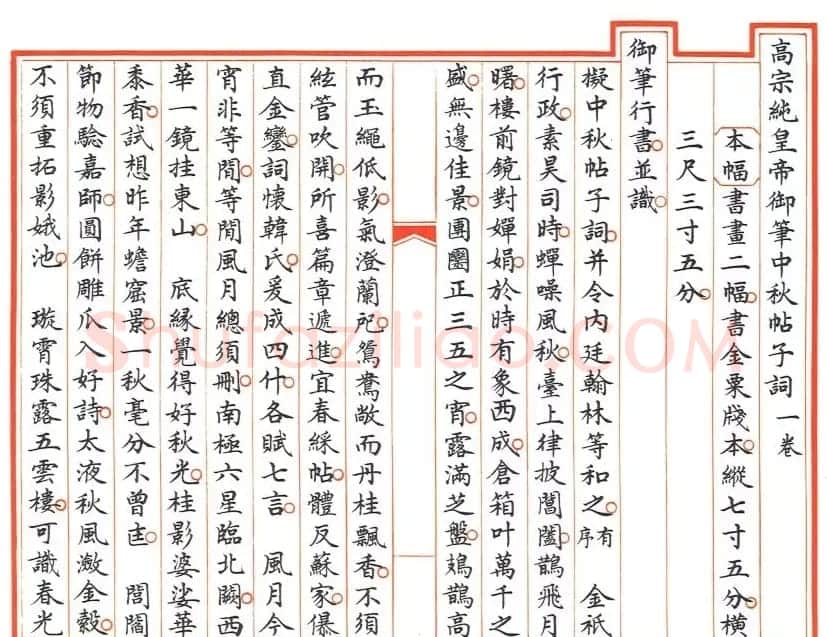 高宗純皇帝御筆中秋帖子詞一卷
本幅書畫二幅書金粟牋本縱七寸五分橫
三尺三寸五分
御筆行書並識
擬中秋帖子詞并令内廷翰林等和之有序 金祇
行政素昊司時蟬噪風秋臺上律披閶闔鵲飛月
曙樓前鏡對嬋娟於時有象西成倉箱叶萬千之
盛無邊佳景團圞正三五之宵露滿芝盤鳷鵲高
而玉繩低影氣澄蘭戺鴛鴦敞而丹桂飄香不須
絃管吹開所喜篇章遞進宜春綵帖體反蘇家儤
直金鑾詞懷韓氏爰成四什各賦七言 風月今
宵非等閒等閒風月總須刪南極六星臨北闕西
華一鏡挂東山 底緣覺得好秋光桂影婆娑華
黍香試想昨年蟾窟景一秋毫分不曾匡 閶闔
節物驗嘉師圓餅雕瓜入好詩太液秋風瀲金縠
不須重拓影娥池 璇霄珠露五雲樓可識春光
Shufaziliao.COM